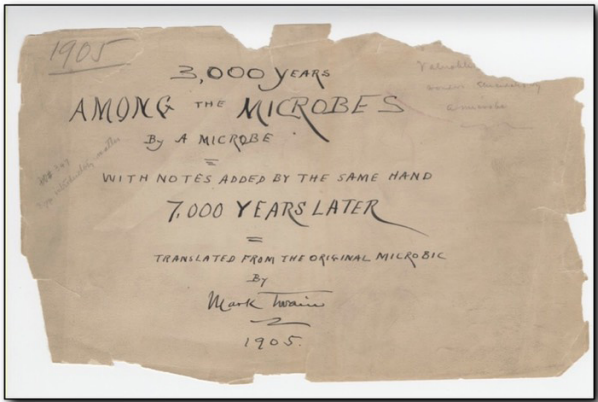 1905
3,000 YEARS
AMONG THE MICROBES
By A MICROBE
WITH NOTES ADDED BY THE SAME HAND
7,000 YEARS LATER
TRANSLATED FROM THE ORIGINAL MICROBIC
By
Mark Twain
1905.